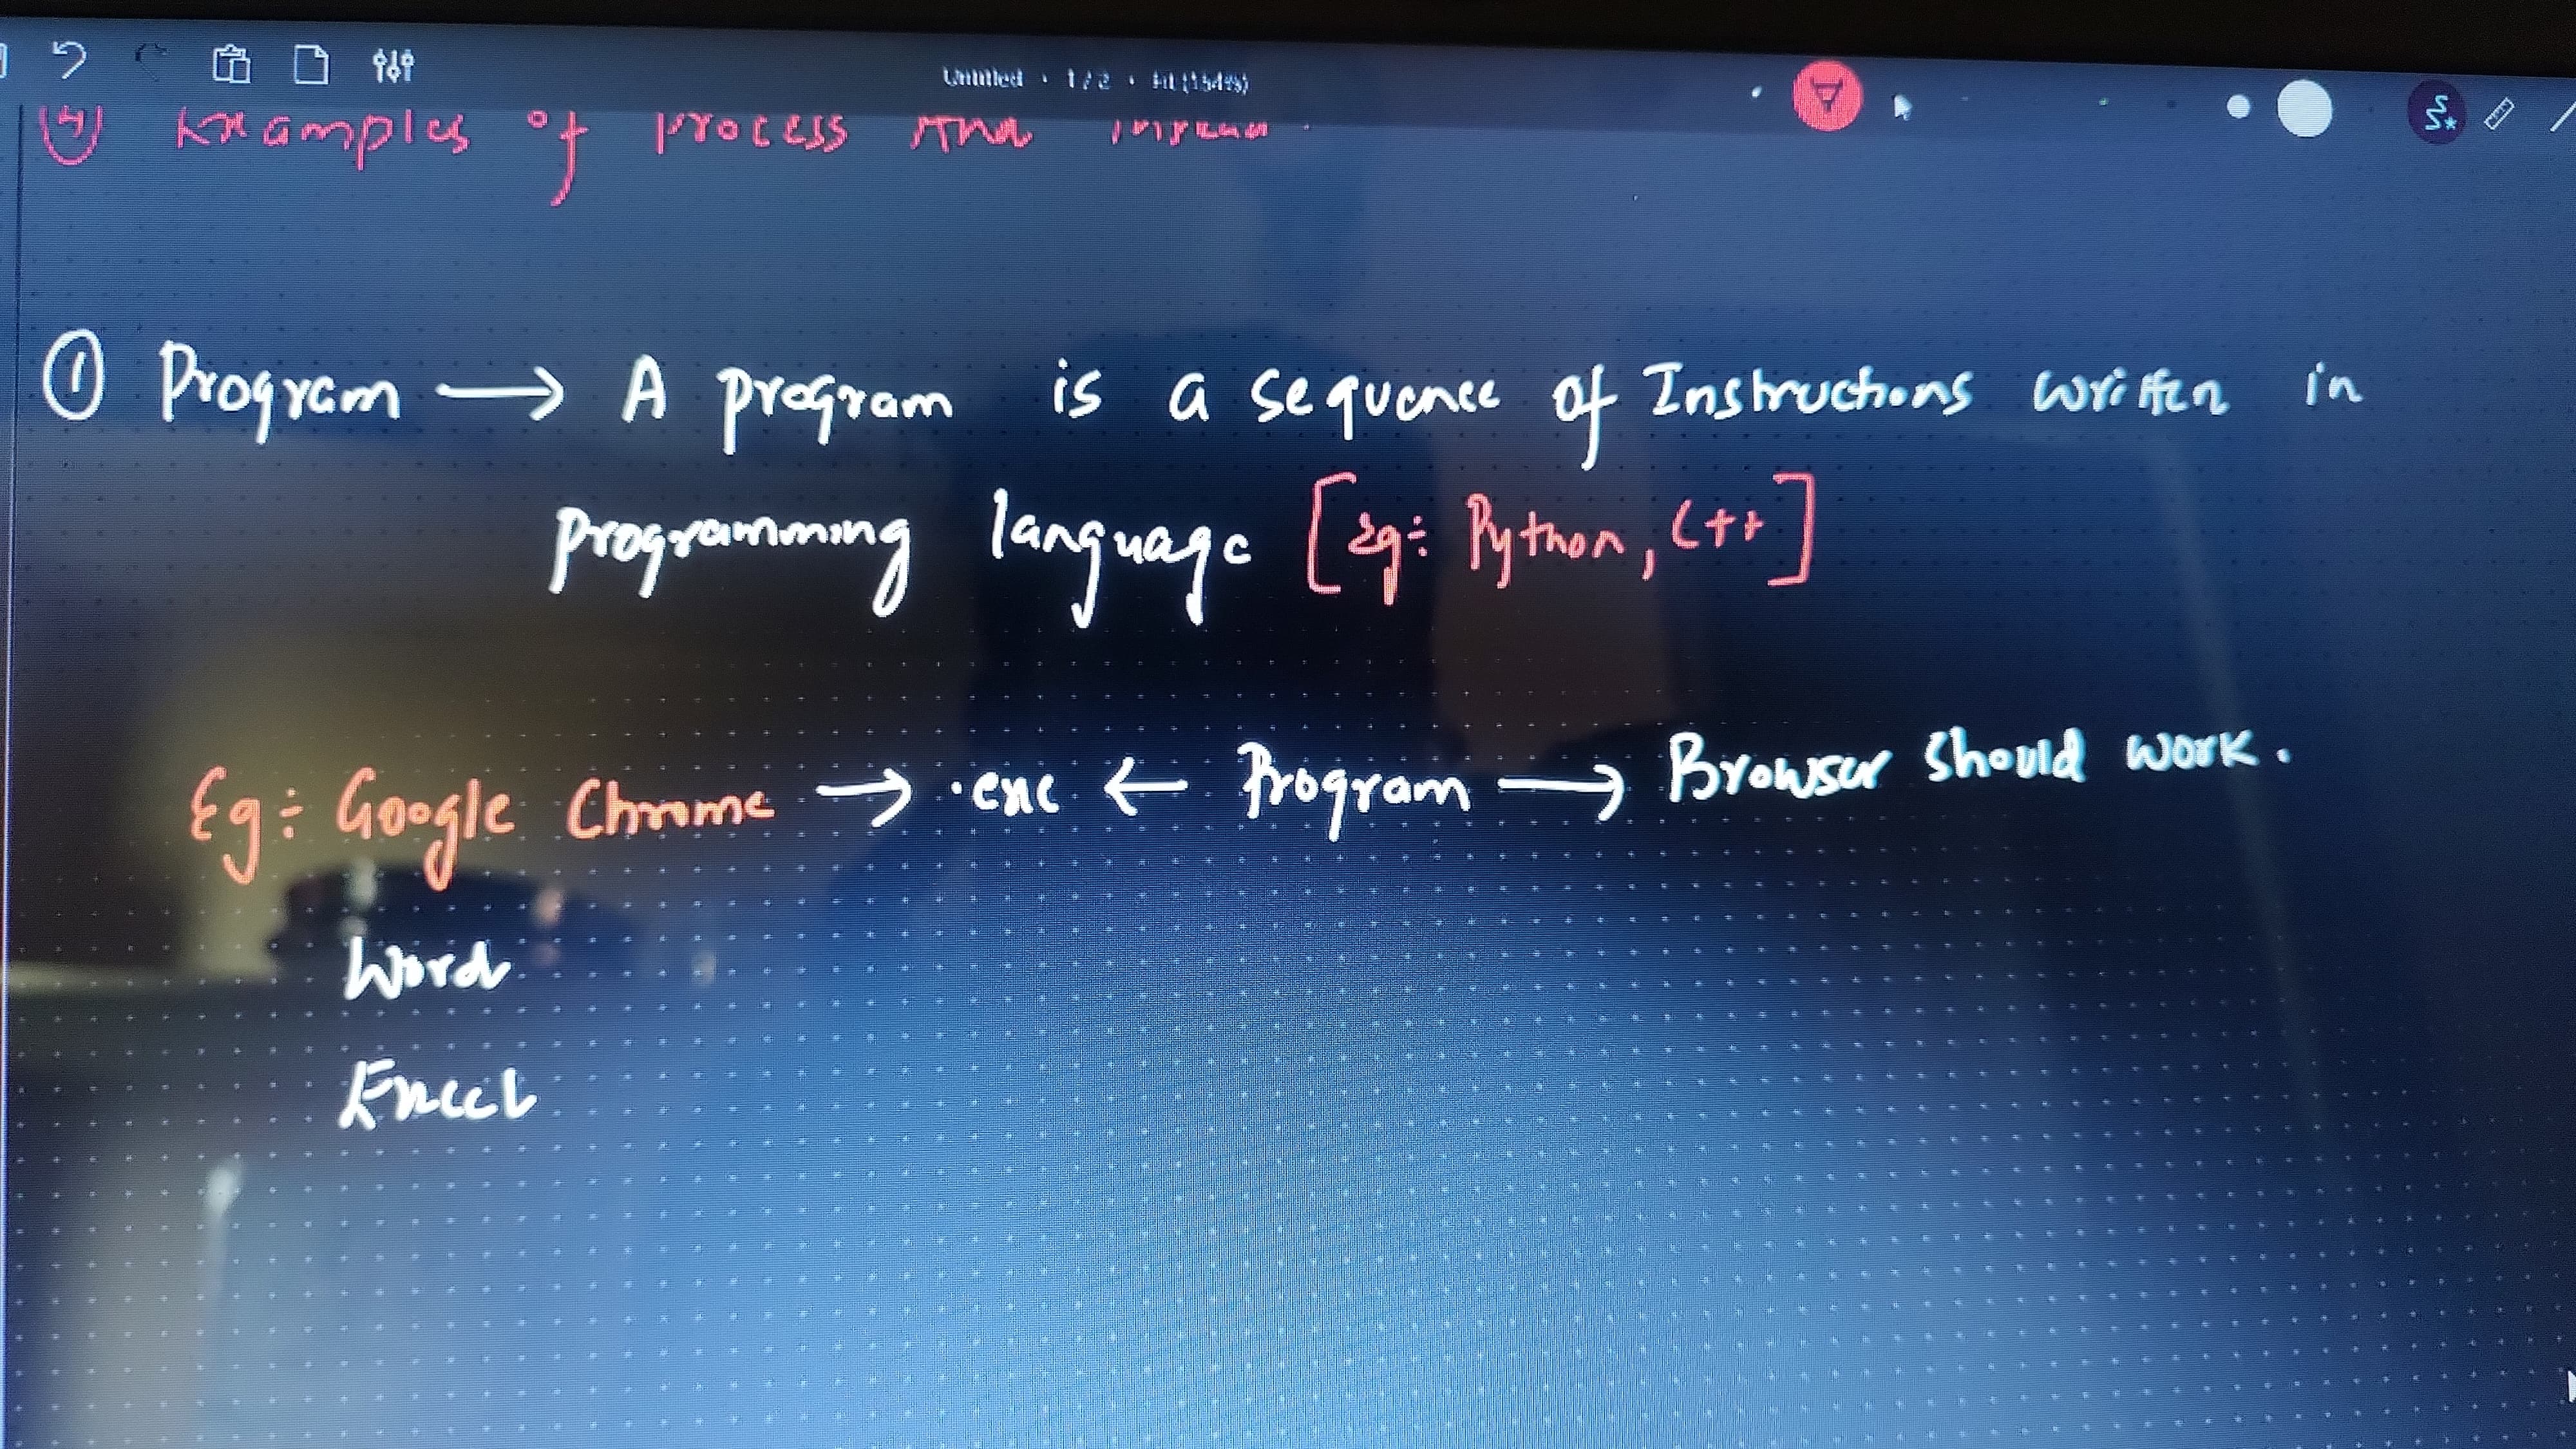 Untitled · 1 / 2 · Fit (154%)
④ Examples of process And Thread
① Program → A program is a sequence of Instructions written in
programming language [Eg:- Python, C++]
Eg:- Google Chrome → .exe ← Program → Browser should work.
Word
Excel